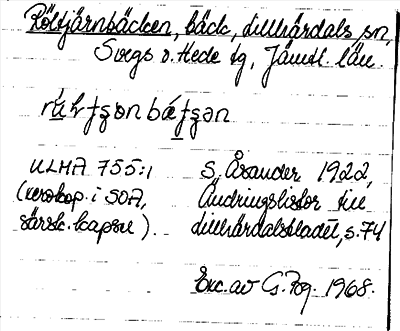 Röltjärnbäcken, bäck, Lillhärdals sn,
Svegs o. Hede tg, Jämtl. län.
ULMA 755:1 S. Åsander 1922,
(xerokop. i SOA, Ändringslistor till
särsk. kapsel). Lillhärdalsbladet, s. 74
Exc. av G. Pog. 1968.